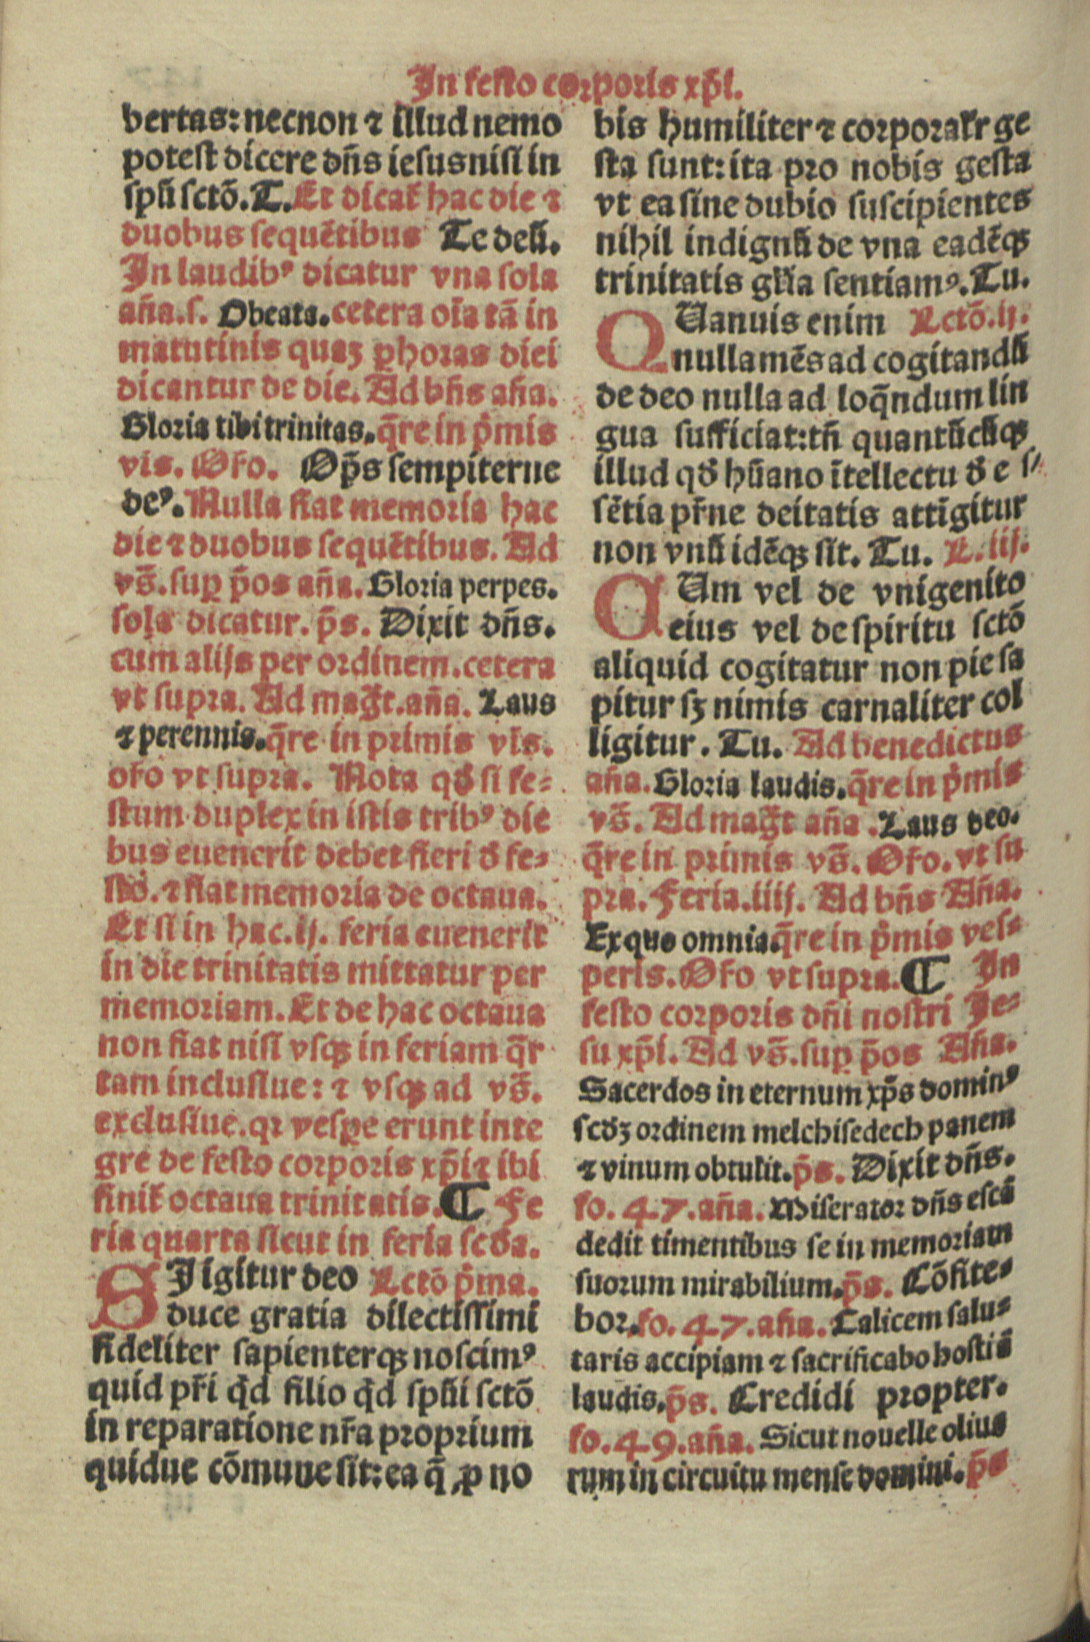 In festo corporis xp̄i.
bertas: necnon ⁊ illud nemo
potest dicere dn̄s iesus nisi in
spū sctō. T. Et dicat̄ hac die ⁊
duobus sequētibus Te deū.
In laudibꝰ dicatur vna sola
an̄a. s. O beata. cetera oīa tā in
matutinis quaꝫ ꝑ horas diei
dicantur de die. Ad bn̄s an̄a.
Gloria tibi trinitas. q̄re in p̄mis
vis. Or̄o. Op̄s sempiterne
deꝰ. Nulla fiat memoria hac
die ⁊ duobus sequētibus. Ad
vs̄. suꝑ p̄os an̄a. Gloria perpes.
sola dicatur. p̄s. Dixit dn̄s.
cum alijs per ordinem. cetera
vt supra. Ad maḡt. an̄a. Laus
⁊ perennis. q̄re in primis vis.
or̄o vt supra. Nota qđ si fe-
stum duplex in istis tribꝰ die
bus euenerit debet fieri đ fe-
sto. ⁊ fiat memoria de octaua.
Et si in hac. ij. feria euenerit
in die trinitatis mittatur per
memoriam. Et de hac octaua
non fiat nisi vsqꝫ in feriam q̄r
tam inclusiue: ⁊ vsqꝫ ad vs̄.
exclusiue. qꝛ vesꝑe erunt inte
gre de festo corporis xp̄i ⁊ ibi
finit̄ octaua trinitatis. ¶ Fe
ria quarta sicut in feria scđa.
SI igitur deo Lctō p̄ma.
duce gratia dilectissimi
fideliter sapienterqꝫ noscimꝰ
quid pr̄i q̄d filio q̄d spūi sctō
in reparatione nr̄a proprium
quidue cōmune sit: ea q̄ ꝓ no
bis humiliter ⁊ corporalr̄ ge
sta sunt: ita pro nobis gesta
vt ea sine dubio suscipientes
nihil indignū de vna eadēqꝫ
trinitatis gl̄ia sentiamꝰ. Tu.
QUanuis enim Lctō. ij.
nulla mēs ad cogitandū
de deo nulla ad loq̄ndum lin
gua sufficiat: tn̄ quantūcūqꝫ
illud qđ hūano ītellectu đ e s//
sētia pr̄ne deitatis attīgitur
non vnū idēqꝫ sit. Tu. L. iij.
CUm vel de vnigenito
eius vel de spiritu sctō
aliquid cogitatur non pie sa
pitur sꝫ nimis carnaliter col
ligitur. Tu. Ad benedictus
an̄a. Gloria laudis. q̄re in p̄mis
vs̄. Ad maḡt an̄a. Laus deo.
q̄re in primis vs̄. Or̄o. vt su
pra. Feria. iiij. Ad bn̄s An̄a.
Ex quo omnia. q̄re in p̄mis ves-
peris. Or̄o vt supra. ¶ In
festo corporis dn̄i nostri Je-
su xp̄i. Ad vs̄. suꝑ p̄os An̄a.
Sacerdos in eternum xp̄s dominꝰ
scđꝫ ordinem melchisedech panem
⁊ vinum obtulit. p̄s. Dixit dn̄s.
fo. 47. an̄a. Miserator dn̄s escā
dedit timentibus se in memoriam
suorum mirabilium. p̄s. Cōfite-
bor. fo. 47. an̄a. Calicem salu-
taris accipiam ⁊ sacrificabo hostiā
laudis. p̄s. Credidi propter.
fo. 49. an̄a. Sicut nouelle oliua
rum in circuitu mense domini. p̄s